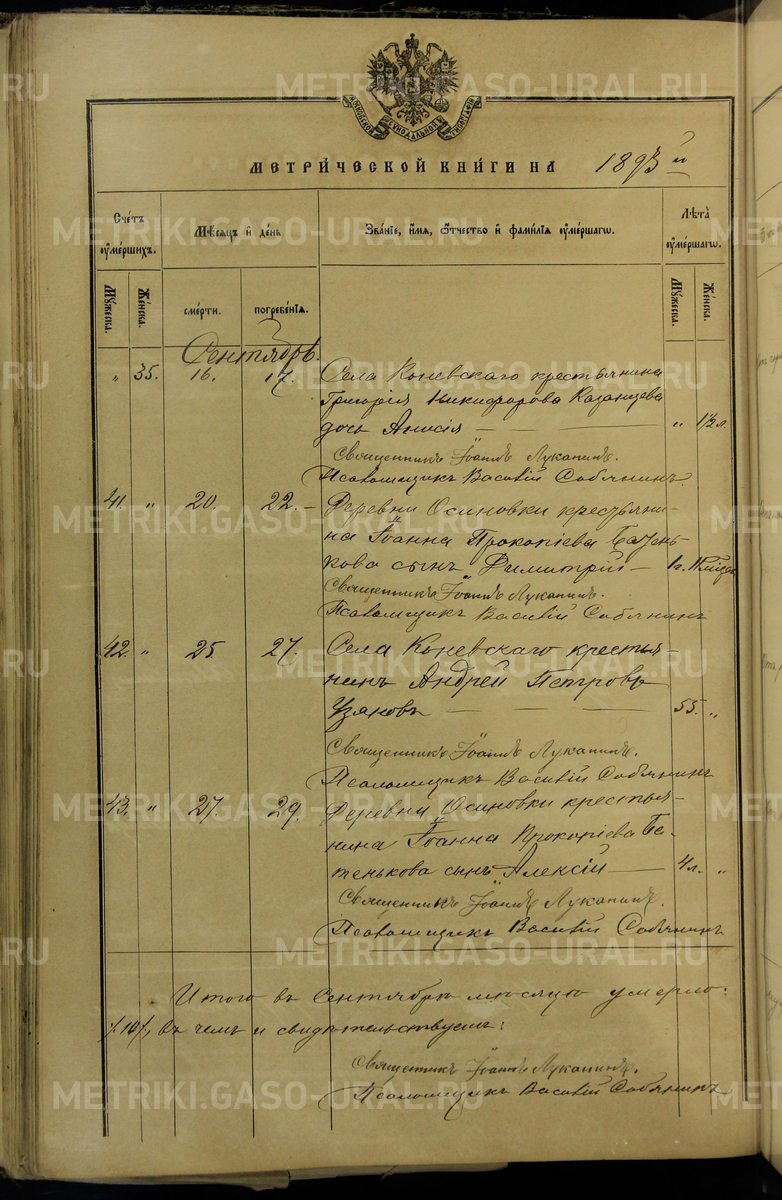 METRIKI.GASO-URAL.RU
МЕТРИЧЕСКОЙ КНИГИ НА 1893 й
Счетъ умершихъ. Мѣсяцъ и день Званіе, имя, отчество и фамилія умершаго. Лѣта умершаго.
Мужеска. Женска. смерти. погребенія. Мужеска. Женска.
Сентябрь.
" 35. 16. 17. Села Коневскаго крестьянина
Григорія Никифорова Казанцева
дочь Анисія — " 1½ л.
Священникъ Іоаннъ Лукапинъ.
Псаломщикъ Василій Собянинъ.
41. " 20. 22. – Деревни Осиновки крестьяни-
на Іоанна Прокопіева Батень-
кова сынъ Димитрій — 1 г.
Священникъ Іоаннъ Лукапинъ.
Псаломщикъ Василій Собянинъ
42. " 25. 27. Села Коневскаго крестья-
нинъ Андрей Петровъ
Узяновъ — 55. "
Священникъ Іоаннъ Лукапинъ.
Псаломщикъ Василій Собянинъ
43. " 27. 29. Деревни Осиновки крестья-
нина Іоанна Прокопіева Ба-
тенькова сынъ Алексій — 4 л. "
Священникъ Іоаннъ Лукапинъ.
Псаломщикъ Василій Собянинъ
Итого въ Сентябрѣ мѣсяцѣ умерло:
въ чемъ и свидѣтельствуемъ:
Священникъ Іоаннъ Лукапинъ.
Псаломщикъ Василій Собянинъ